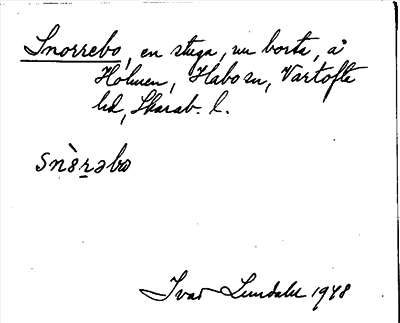 Snorrebo, en stuga, nu borta, å
Holmen, Habo sn, Vartofta
hd, Skarab. l.
snὲr̲əbo
Ivar Lundahl 1948